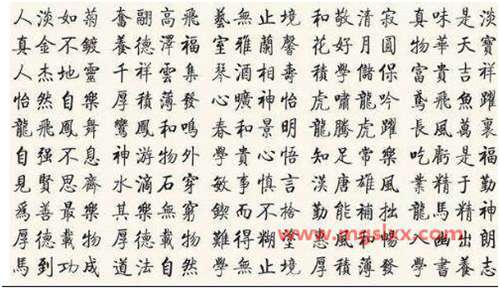 人淡如菊奮翮高飛藝無止境和敬清寂真味是淡
真金不鍍養德澤福室雅蘭馨花好月圓物華天寶
人杰地靈千祥雲集琴酒相壽積學儲保富貴吉祥
怡然自樂厚積薄發心曠神怡虎嘯龍吟鳶飛魚躍
龍飛鳳舞鸞鳳和鳴春和景明龍騰虎躍長風萬裏
自强不息神游物外學貴心悟知足常樂吃虧是福
見賢思齊水滴石穿敏事慎言漢唐雄風業精于勤
爲善最樂其樂無窮鍥而不捨勤能補拙龍馬精神
厚德載物厚德載物難得糊塗惠風和暢人幽出朗
馬到功成道法自然學無止境厚積薄發學書養志
www.mgslxx.com